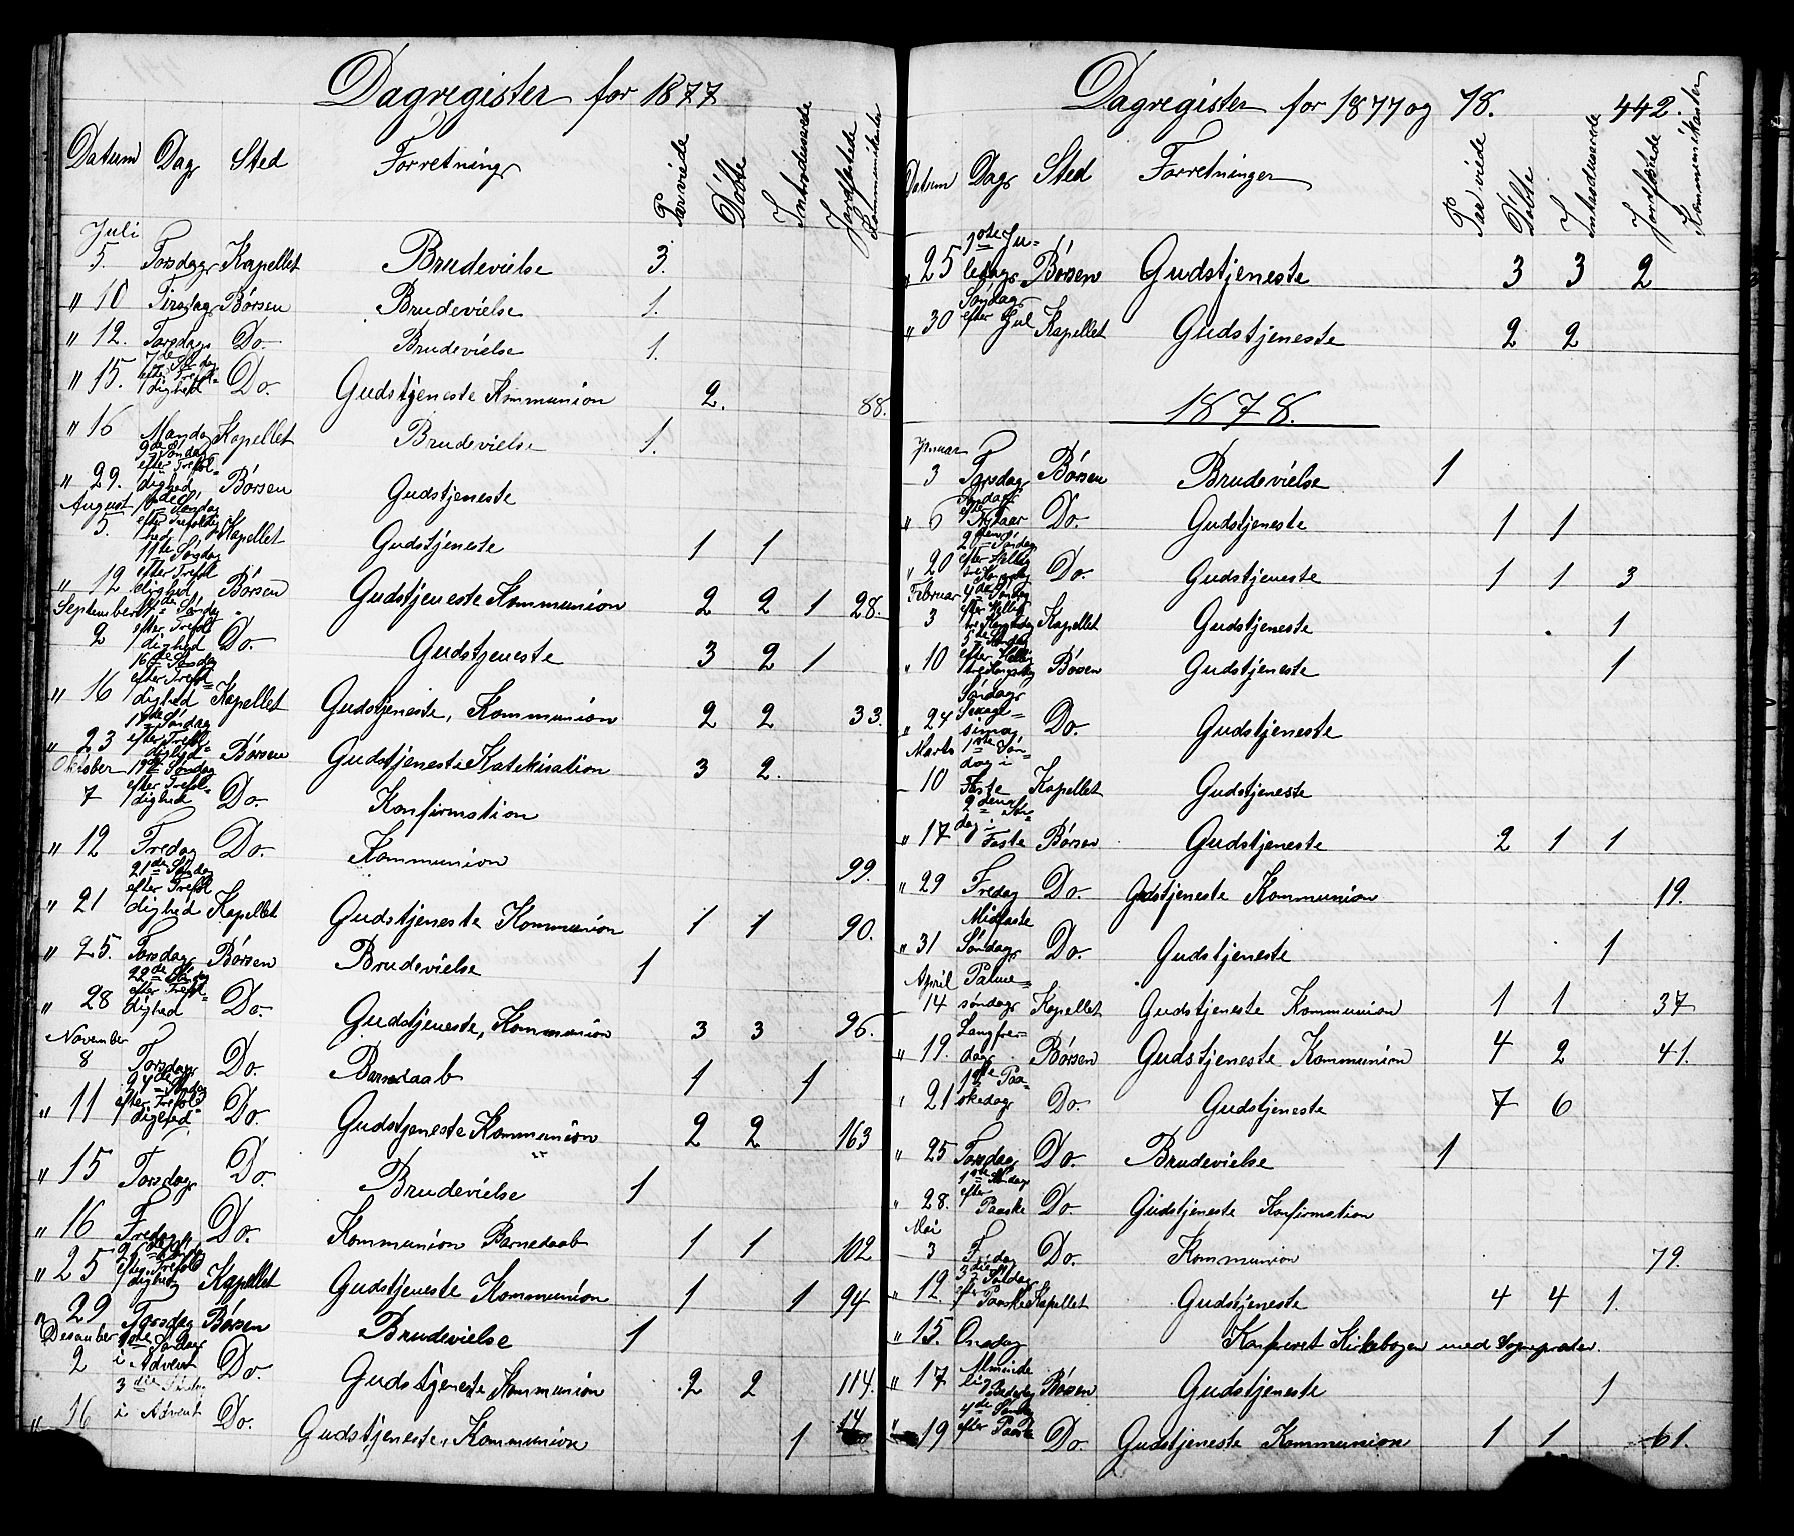 Dagregister for 1877
Datum Dag Sted Forretning Par viede Døbte Introduserede Jordfæstede Kommunikanter
Juli
5. Torsdag Kapellet Brudevielse 3.
" 10 Tirsdag Børsen Brudevielse 1.
" 12. Torsdag Do. Brudevielse 1.
7de Søndag
efter Trefol-
" 15. dighed Do. Gudstjeneste Kommunion 2. 88.
" 16 Mandag Kapellet Brudevielse 1.
9de Søndag
efter Trefol-
" 29. dighed Børsen Gudstjeneste
August 10de Søndag
efter Trefoldig
5. hed Kapellet Gudstjeneste 1 1
11te Søndag
efter Trefol
" 12 dighed Børsen Gudstjeneste Kommunion 2 2 1 28.
September Søndag
efter Trefol
2 dighed Do. Gudstjeneste 3 2 1
16de Søndag
efter Trefol-
" 16 dighed Kapellet Gudstjeneste, Kommunion 2 2 33.
17de Søndag
efter Trefol-
" 23 dighed Børsen Gudstjeneste Katekisation 3 2.
Oktober 19de Søndag
efter Trefol-
7 dighed Do. Konfirmation
" 12 Fredag Do. Kommunion 99.
21de Søndag
efter Trefol
" 21 dighed Kapellet Gudstjeneste Kommunion 1 1 90.
" 25. Torsdag Børsen Brudevielse 1
22de Søndag
efter Trefol-
" 28 dighed Do. Gudstjeneste, Kommunion 3 3 96.
November
8 Torsdag Do. Barnedaab 1 1
24de Søndag
efter Trefol
" 11 dighed Do. Gudstjeneste Kommunion 2 2 163
" 15 Torsdag Do. Brudevielse 1
" 16 Fredag Do. Kommunion Barnedaab 1 1 102
26de Søndag
efter Trefol
" 25 dighed Kapellet Gudstjeneste Kommunion 1 1 94
" 29 Torsdag Børsen Brudevielse 1
Desember 1ste Søndag
2 i Advent Do. Gudstjeneste Kommunion 2 2 114.
3die Søndag
" 16 i Advent Do. Gudstjeneste, Kommunion 1 14
Dagregister for 1877 og 78. 442.
Datum Dag Sted Forretninger Par viede Døbte Introduserede Jordfæstede Kommunikanter
1ste Ju-
" 25 ledag Børsen Gudstjeneste 3 3 2
Søndag
" 30 efter Jul Kapellet Gudstjeneste 2 2
1878.
Januar
3 Torsdag Børsen Brudevielse 1
Søndag
efter
" 6 Nytaar Do. Gudstjeneste 1 1
2den Søndag
efter Hellig
" 20 tre Kongedag Do. Gudstjeneste 1 1 3
Februar 4de Søndag
efter Hellig
3 tre Kongedag Kapellet Gudstjeneste 1
5te Søndag
efter Hellig
" 10 trekongedag Børsen Gudstjeneste 1
Søndag
" 24 Sexage-
sima Do. Gudstjeneste
Marts 1ste Søn-
dag i
10 Faste Kapellet Gudstjeneste
2den Søn-
dag i
" 17 Faste Børsen Gudstjeneste 2 1 1
" 29 Fredag Do. Gudstjeneste Kommunion 19.
Midfaste
" 31 Søndag Do. Gudstjeneste 1
April Palme-
14 søndag Kapellet Gudstjeneste Kommunion 1 1 37
Langfre-
" 19. dag Børsen Gudstjeneste Kommunion 4 2 41.
1ste Paa-
" 21 skedag Do. Gudstjeneste 7 6
" 25 Torsdag Do. Brudevielse 1
1ste Søndag
efter
" 28. Paaske Do Gudstjeneste Konfirmation
Mai
3 Fredag Do. Kommunion 79.
3die Søndag
" 12 efter Paaske Kapellet Gudstjeneste 4 4 1.
" 15. Onsdag Konfereret Kirkebogen med Sognepræsten.
Alminde
" 17 lig Bededag Børsen Gudstjeneste 1
4de Søndag
" 19 efter Paaske Do. Gudstjeneste Kommunion 1 1 61.